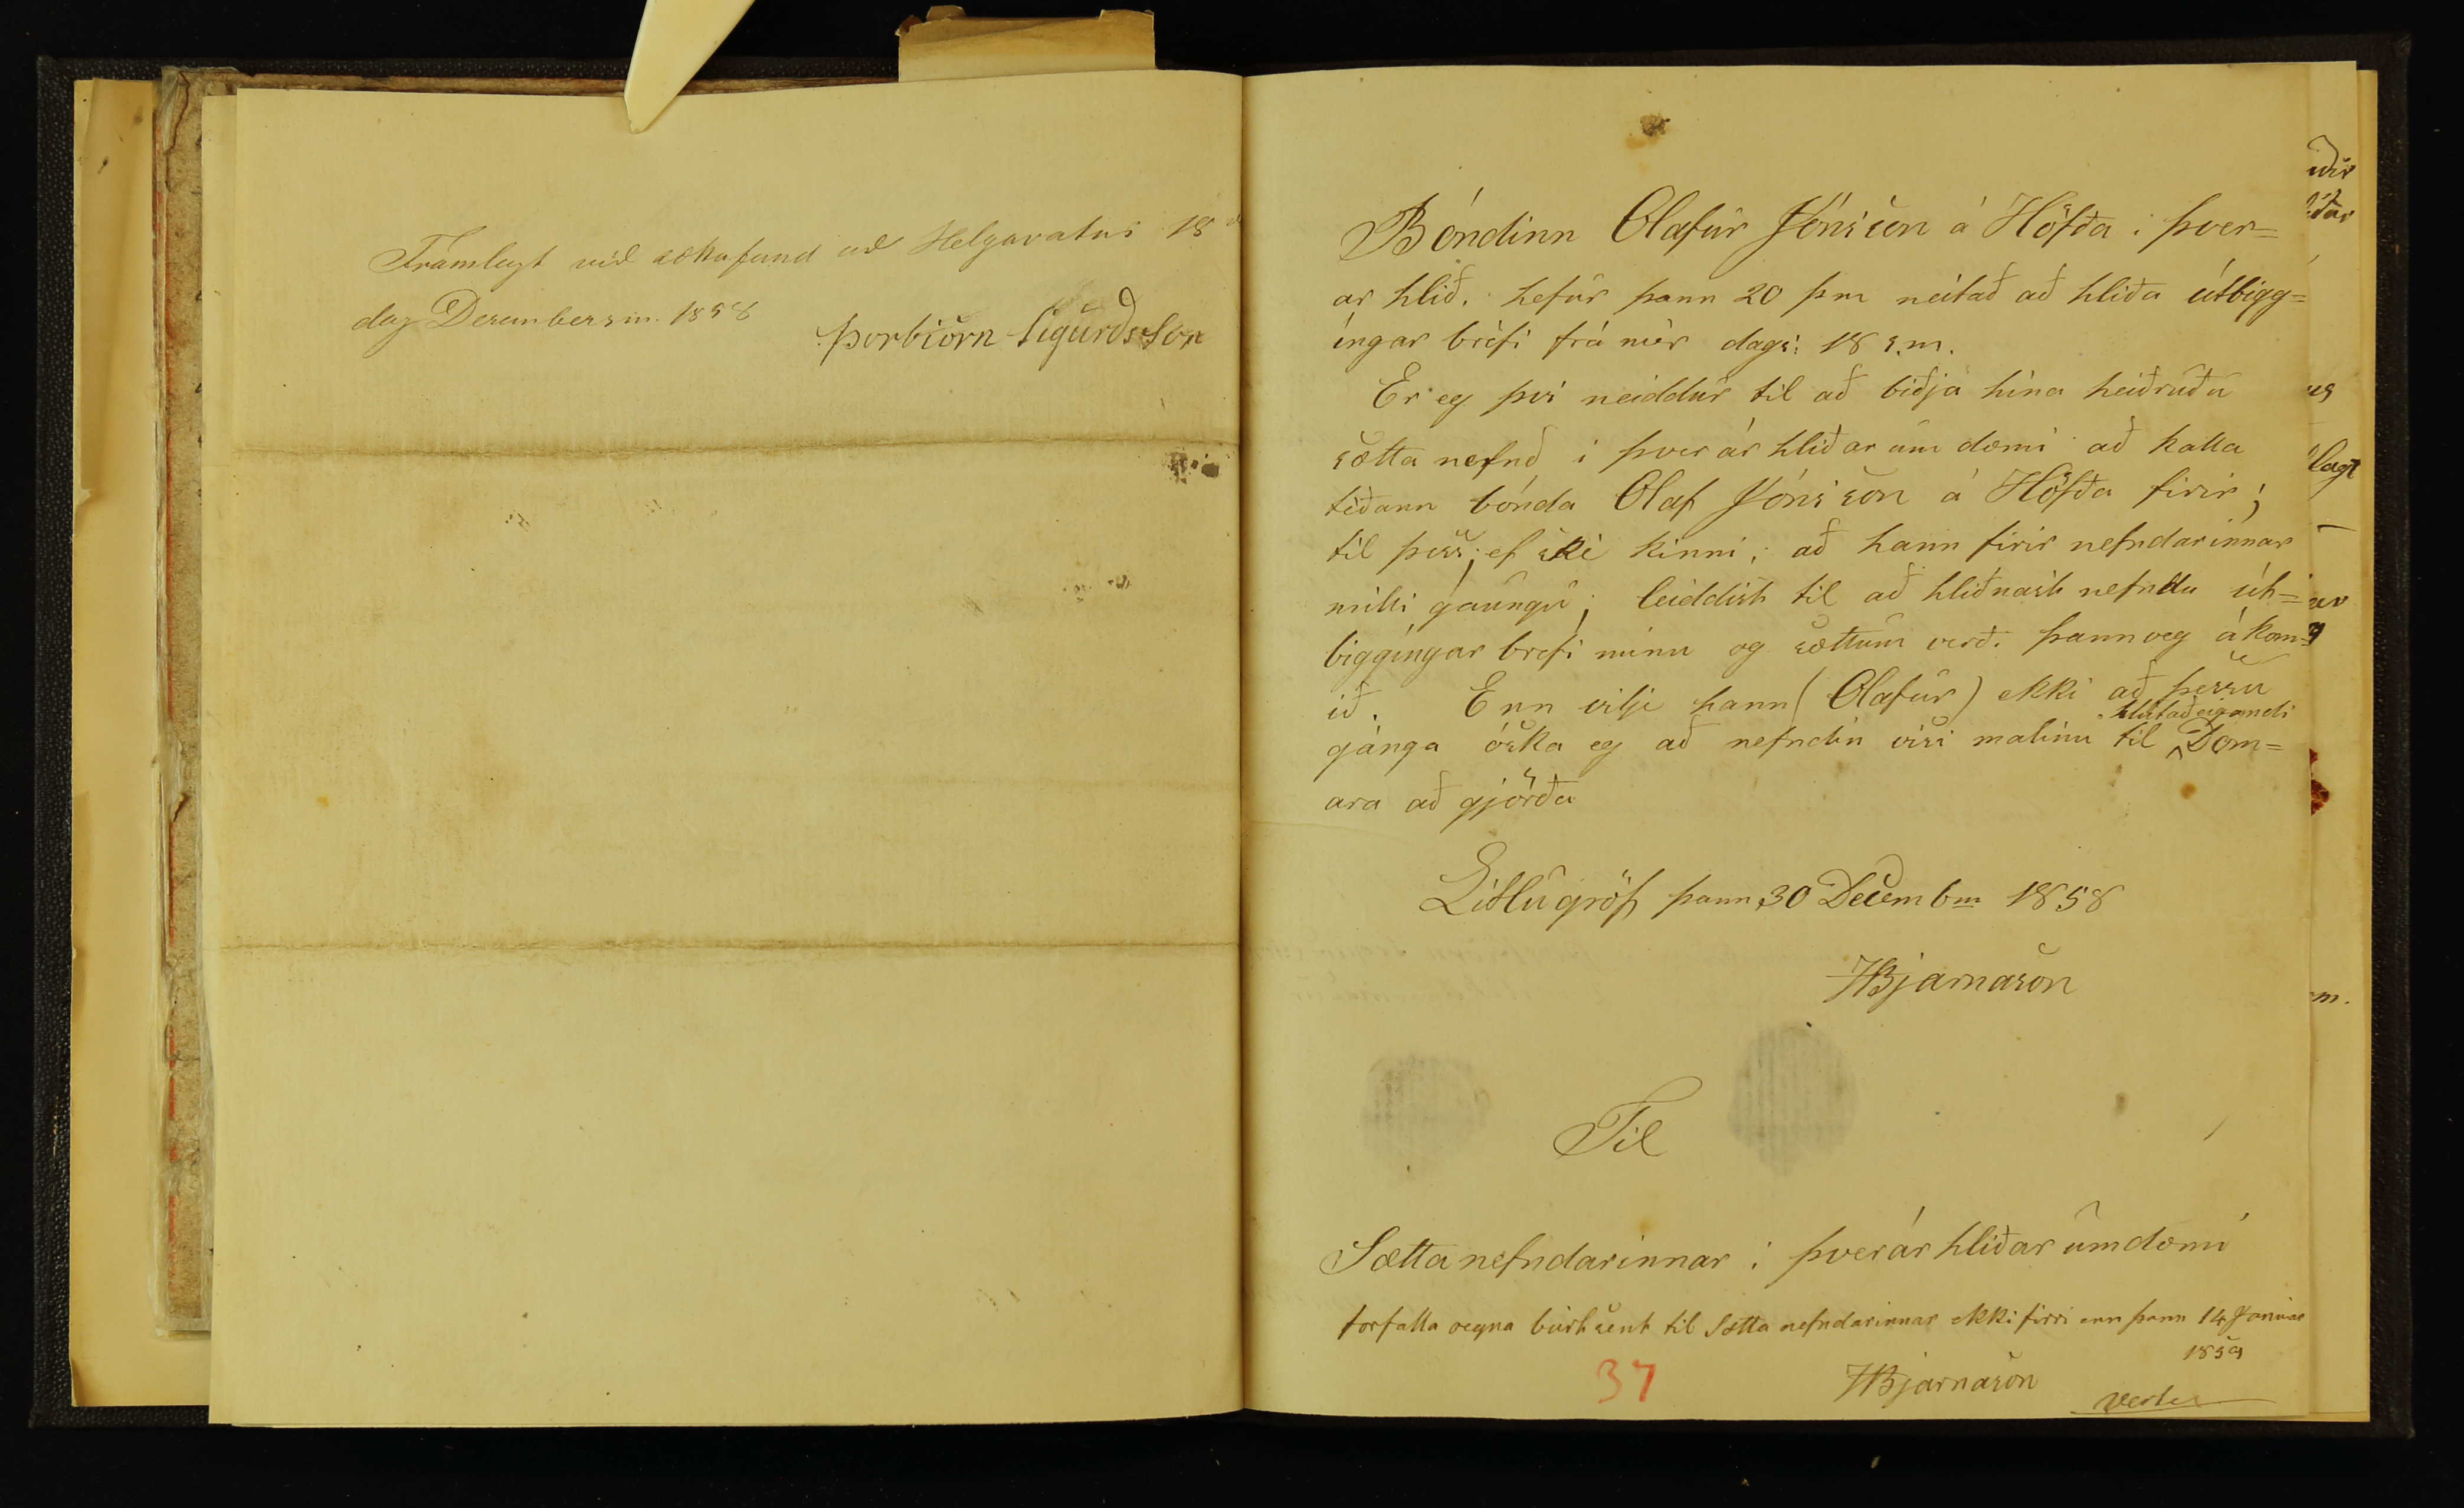 Framlagt við sættafund að Helgavatni 18
dag Desembersm. 1858
Þorbiörn Sigurðsson
Bóndinn Olafur Jónsson á Höfða i þver=
ar hlið. hefur þann 20 þm neitað að hliða útbigg=
íngar bréfi frá mér dags: 18 s.m.
Er eg þvi neiddur til að biðja hina heiðruðu
sætta nefnd i þverár hliðar um dæmi að kalla
téðann bónda Olaf Jónsson á Höfða firir;
til þess; ef ske kinni; að hann firir nefndarinnar
milli gaungu; leiddist til að hliðnast nefndu út=
biggíngar brefi minu og sættum verð. þannveg ákom=
ið. Enn vilje hann (Olafur) ekki að þessu
gánga óska eg að nefndin visi malinu til hlutaðeigandi Dom=
ara að gjörða
Litlugröf þann 30 Decembm 1858
HBjarnason
Til
Sætta nefndarinnar i þverár hliðar umdæmi
forfalla vegna burtsent til Sætta nefndarinnar ekki firri enn þann 14 Januar
1859
HBjarnason
37
verte
iðir
us
lagt
ur
m.